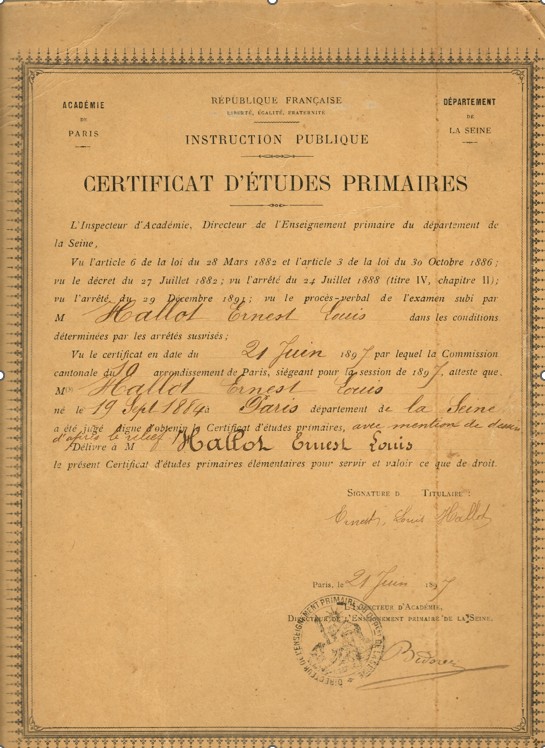 ACADÉMIE
DE
PARIS
RÉPUBLIQUE FRANÇAISE
LIBERTÉ, ÉGALITÉ, FRATERNITÉ
INSTRUCTION PUBLIQUE
DÉPARTEMENT
DE
LA SEINE
CERTIFICAT D'ÉTUDES PRIMAIRES
L'Inspecteur d'Académie, Directeur de l'Enseignement primaire du département de
la Seine,
Vu l'article 6 de la loi du 28 Mars 1882 et l'article 3 de la loi du 30 Octobre 1886;
vu le décret du 27 Juillet 1882; vu l'arrêté du 24 Juillet 1888 (titre IV, chapitre II);
vu l'arrêté du 29 Décembre 1891; vu le procès-verbal de l'examen subi par
M Hallot Ernest Louis dans les conditions
déterminées par les arrêtés susvisés;
Vu le certificat en date du 21 Juin 1897 par lequel la Commission
cantonale du arrondissement de Paris, siégeant pour la session de 1897, atteste que
M Hallot Ernest Louis
né le 19 Sept 1884 à Paris département de la Seine
a été jugé digne d'obtenir le Certificat d'études primaires, avec mention de dessin
d'après le relief
Délivré à M Hallot Ernest Louis
le présent Certificat d'études primaires élémentaires pour servir et valoir ce que de droit.
SIGNATURE D TITULAIRE:
Ernest Louis Hallot
Paris, le 21 Juin 1897
L'INSPECTEUR D'ACADÉMIE,
DIRECTEUR DE L'ENSEIGNEMENT PRIMAIRE DE LA SEINE,